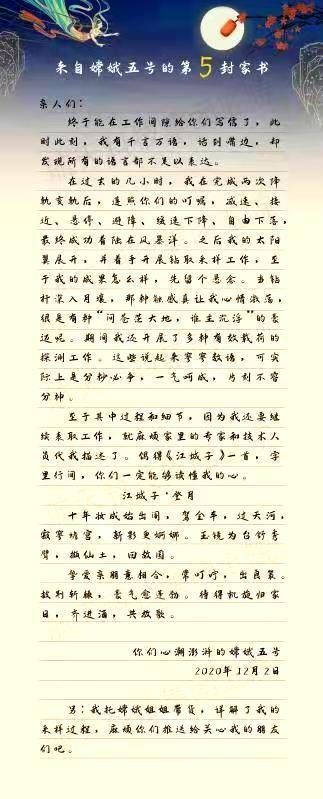 来自嫦娥五号的第5封家书
亲人们：
终于能在工作间隙给你们写信了，此
时此刻，我有千言万语，话到嘴边，却
发现所有的语言都不足以表达。
在过去的几小时，我在完成两次降
轨变轨后，遵照你们的叮嘱，减速、接
近、悬停、避障、缓速下降、自由下落，
最终成功着陆在风暴洋。之后我的太阳
翼展开，并着手开展钻取采样工作，至
于我的成果怎么样，先留个悬念。当钻
杆深入月壤，那种触感真让我心情激荡，
很是有种“问苍茫大地，谁主沉浮”的豪
迈呢。期间我还开展了多种有效载荷的
探测工作。这些说起来寥寥数语，可实
际上是分秒必争，一气呵成，片刻不容
分神。
至于其中过程和细节，因为我还要继
续表取工作，就麻烦家里的专家和技术人
员代我描述了。偶得《江城子》一首，字
里行间，你们一定能够读懂我的心。
江城子·登月
十年妆成始出闺，驾金车，过天河，
寂寥培宫，新影更婀娜。玉镜为台舒秀
臂，撷仙土，回故园。
挚爱亲朋意相合，常叮咛，出良策。
披荆斩棘，豪气愈蓬勃。待得凯旋归家
日，齐进酒，共放歌。
你们心潮澎湃的嫦娥五号
2020年12月2日
另：我托嫦娥姐姐带货，详解了我的
采样过程，麻烦你们推送给关心我的朋友
们吧。